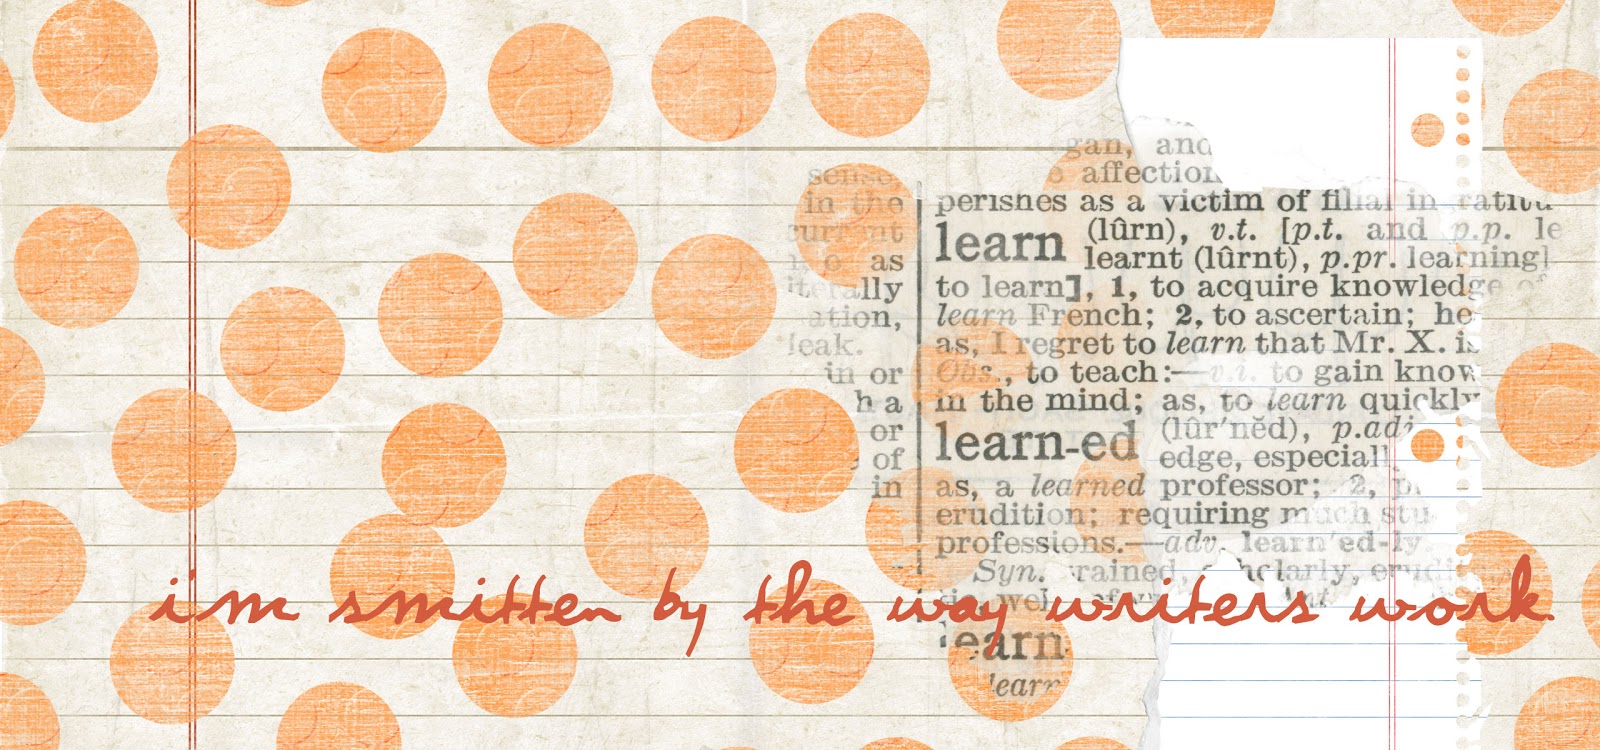 sense.
in the
as
ally
ation,
leak.
in or
h a
or
of
in
gan, and
affection
perishes as a victim of filial in
learn (lûrn), v.t. [p.t. and p.p. le
learnt (lûrnt), p.pr. learning]
to learn], 1, to acquire knowledge of
learn French; 2, to ascertain; he
as, I regret to learn that Mr. X. is
Obs., to teach:—v.i. to gain know
in the mind; as, to learn quickly
learn-ed (lûr'nĕd), p.adj.
edge, especiall
as, a learned professor; 2,
erudition; requiring much stu
professions.—adv. learn'ed-ly.
Syn. rained, scholarly, erudi
learn
learn
i'm smitten by the way writers work.